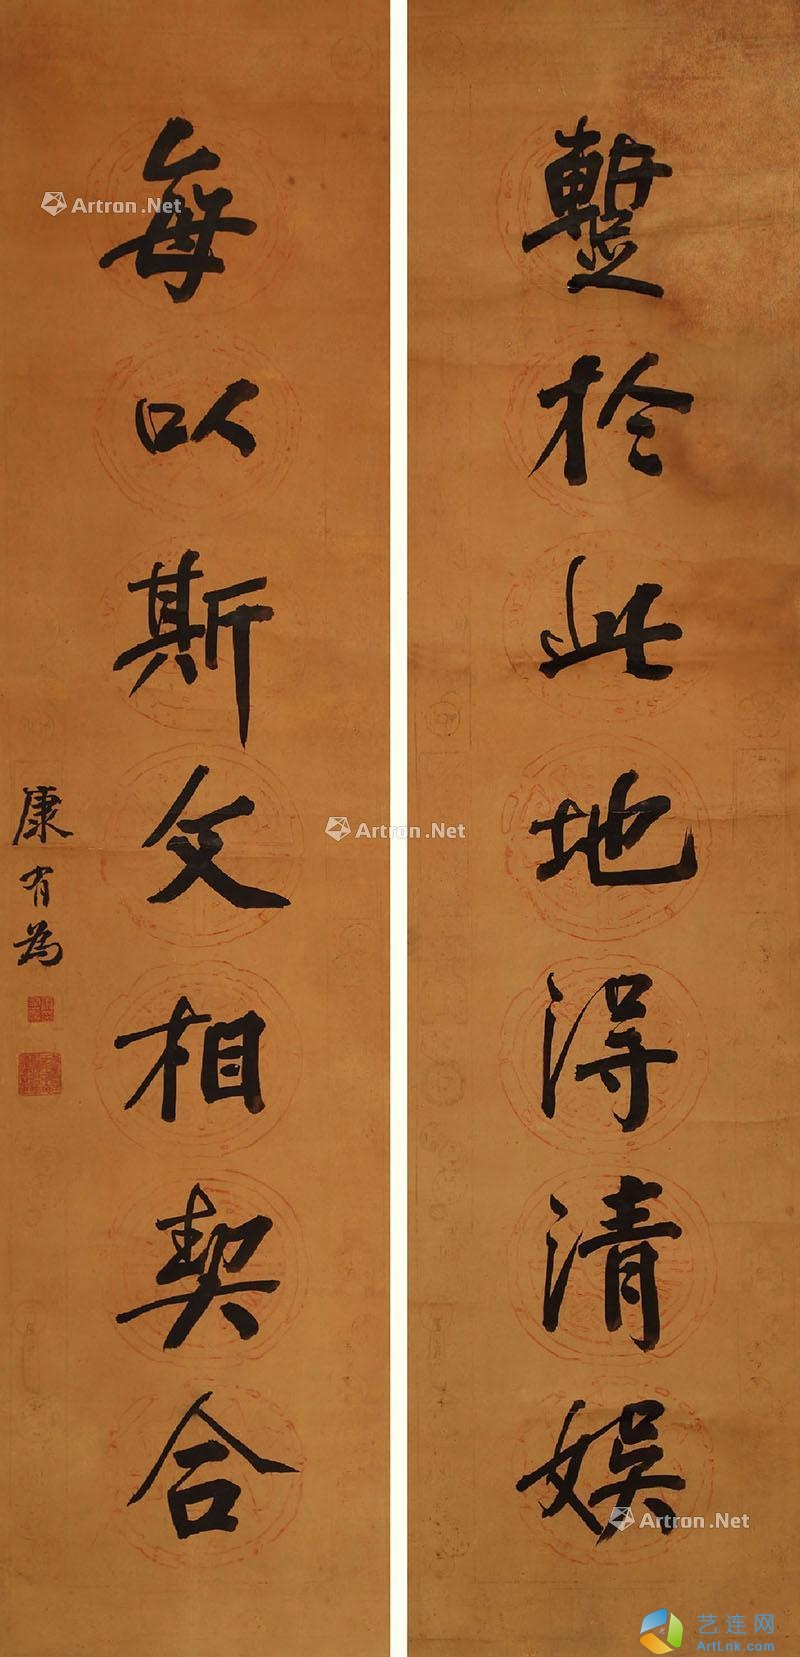 蹔於此地得清娱
每以斯文相契合
康有為
Artron.Net
Artron.Net
Artron.Net
艺连网
ArtLnk.com